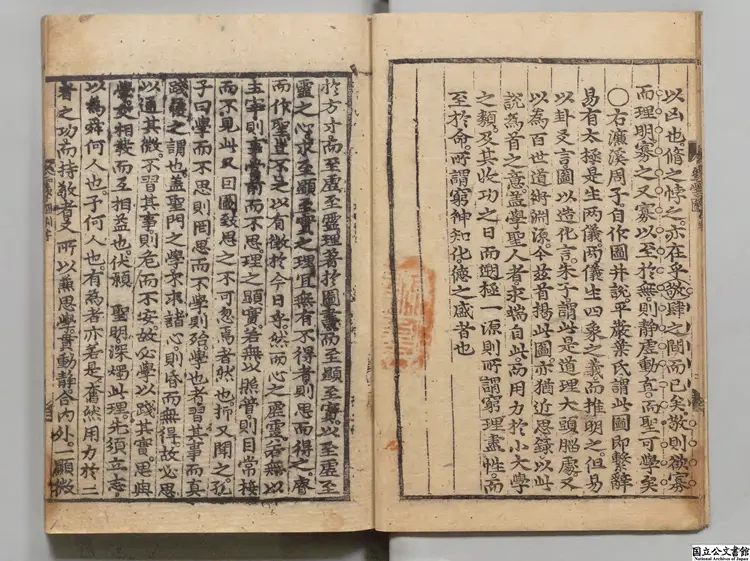 以凶也脩之悖之亦在乎敬肆之間而已矣敬則欲寡
而理明寡之又寡以至於無則静虛動直而聖可學矣
〇右濂溪周子自作圖并說平巖葉氏謂此圖即繫辭
易有太極是生兩儀兩儀生四象之義而推明之但易
以卦爻言圖以造化言朱子謂此是道理大頭腦處又
以為百世道術淵源今兹首揭此圖亦猶近思錄以此
說為首之意盖學聖人者求端自此而用力於小大學
之類及其收功之日而遡極一源則所謂窮理盡性而
至於命所謂窮神知化德之盛者也
於方寸而至虛至靈理著於圖書而至顯至實以至虛至
靈之心求至顯至實之理宜無有不得者則思而得之睿
而作聖豈不足以有徵於今日乎然而心之虛靈若無以
主宰則事當前而不思理之顯實若無以照管則目常接
而不見此又因圖致思之不可忽焉者然也抑又聞之孔
子曰學而不思則罔思而不學則殆學也者習其事而真
踐履之謂也盖聖門之學不求諸心則昏而無得故必思
以通其微不習其事則危而不安故必學以踐其實思與
學交相發而互相益也伏願 聖明深燭此理先須立志
以為舜何人也予何人也有為者亦若是奮然用力於二
者之功而持敬者又所以兼思學貫動静合内外一顯微
国立公文書館
National Archives of Japan